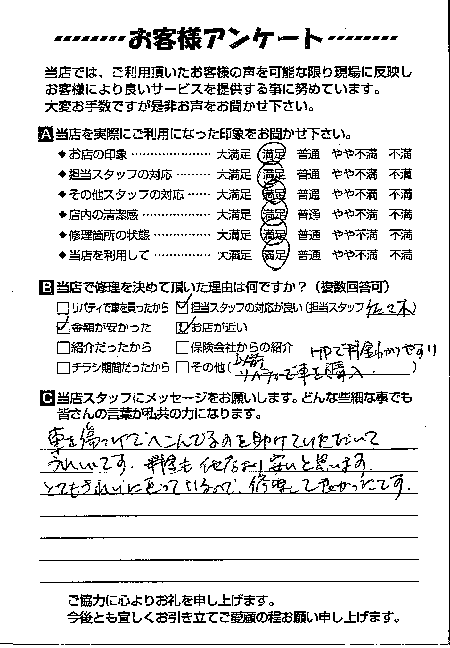 お客様アンケート
当店では、ご利用頂いたお客様の声を可能な限り現場に反映し
お客様により良いサービスを提供する事に努めています。
大変お手数ですが是非お声をお聞かせ下さい。
A 当店を実際にご利用になった印象をお聞かせ下さい。
◆お店の印象 ・・・・・・・・・・・・・ 大満足 満足 普通 やや不満 不満
◆担当スタッフの対応 ・・・・・・ 大満足 満足 普通 やや不満 不満
◆その他スタッフの対応 ・・・・ 大満足 満足 普通 やや不満 不満
◆店内の清潔感 ・・・・・・・・・・・ 大満足 満足 普通 やや不満 不満
◆修理箇所の状態 ・・・・・・・・・ 大満足 満足 普通 やや不満 不満
◆当店を利用して ・・・・・・・・・ 大満足 満足 普通 やや不満 不満
B 当店で修理を決めて頂いた理由は何ですか?(複数回答可)
□リバティで車を買ったから ☑担当スタッフの対応が良い(担当スタッフ 佐々木)
☑金額が安かった ☑お店が近い
□紹介だったから □保険会社からの紹介 HPで料金わかりやすい
□チラシ期間だったから □その他(以前リバティーで車を購入.)
C 当店スタッフにメッセージをお願いします。どんな些細な事でも
皆さんの言葉が私共の力になります。
車を傷つけてへこんでるのを助けていただいて
うれしいです。料金も他店より安いと思います.
とてもきれいに直っているので、修理して良かったです.
ご協力に心よりお礼を申し上げます。
今後とも宜しくお引き立てご愛顧の程お願い申し上げます。